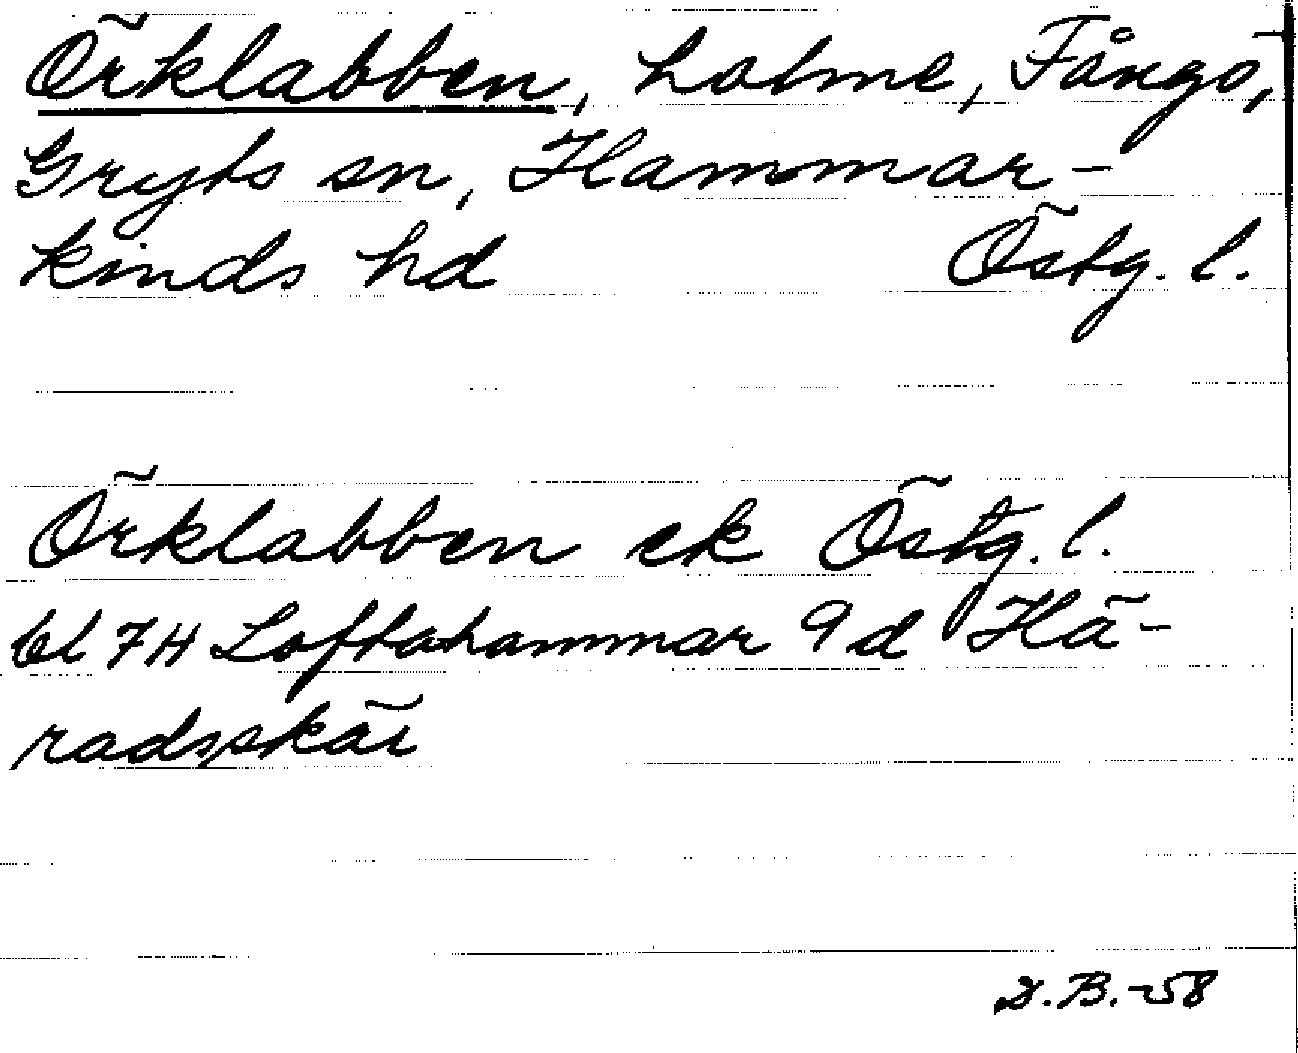 Örklabben, holme, Fångö,
Gryts sn, Hammar-
kinds hd Östg. l.
Örklabben ek Östg. l.
bl 7H Loftahammar 9d Hä-
radsskär
B.-58